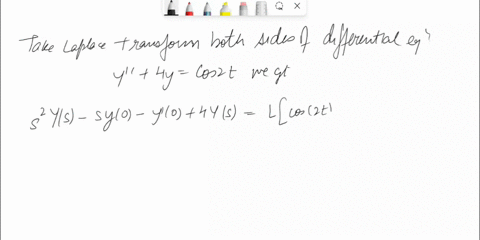 Take Laplace transform both sides of differential eqn
y'' + 4y = cos2t we get
s²Y(s) - sy(0) - y'(0) + 4Y(s) = L[cos(2t)